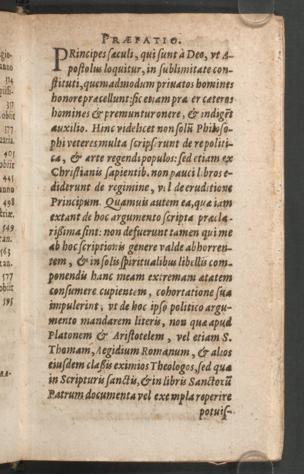 gio-
anno
314
piissi-
317
obiit
377
narria.
401
obiit
441
annos
498
striæ.
549
tan.
563
tan.
577
obiit
595
RA-
PRÆFATIO.
PRincipes sæculi, qui sunt à Deo, vt A-
postolus loquitur, in sublimitate con-
stituti, quemadmodum priuatos homines
honore præcellunt: sic etiam præ cæteros
homines & premuntur onere, & indigēt
auxilio. Hinc videlicet non solũ Philoso-
phi veteres multa scripserunt de repoliti-
ca, & arte regendi populos: sed etiam ex
Christianis sapientib. non pauci libros e-
diderunt de regimine, vel de eruditione
Principum. Quamuis autem ea, quæ iam
extant de hoc argumento scripta præcla-
rissima sint: non defuerunt tamen qui me
ab hoc scriptionis genere valde abhorren-
tem, & in solis spiritualibus libellis com-
ponendis hanc meam extremam ætatem
consumere cupientem, cohortatione sua
impulerint, vt de hoc ipso politico argu-
mento mandarem literis, non quæ apud
Platonem & Aristotelem, vel etiam S.
Thomam, Aegidium Romanum, & alios
eiusdem classis eximios Theologos, sed quæ
in Scripturis sanctis, & in libris Sanctorũ
Patrum documenta vel exempla reperire
potuis-